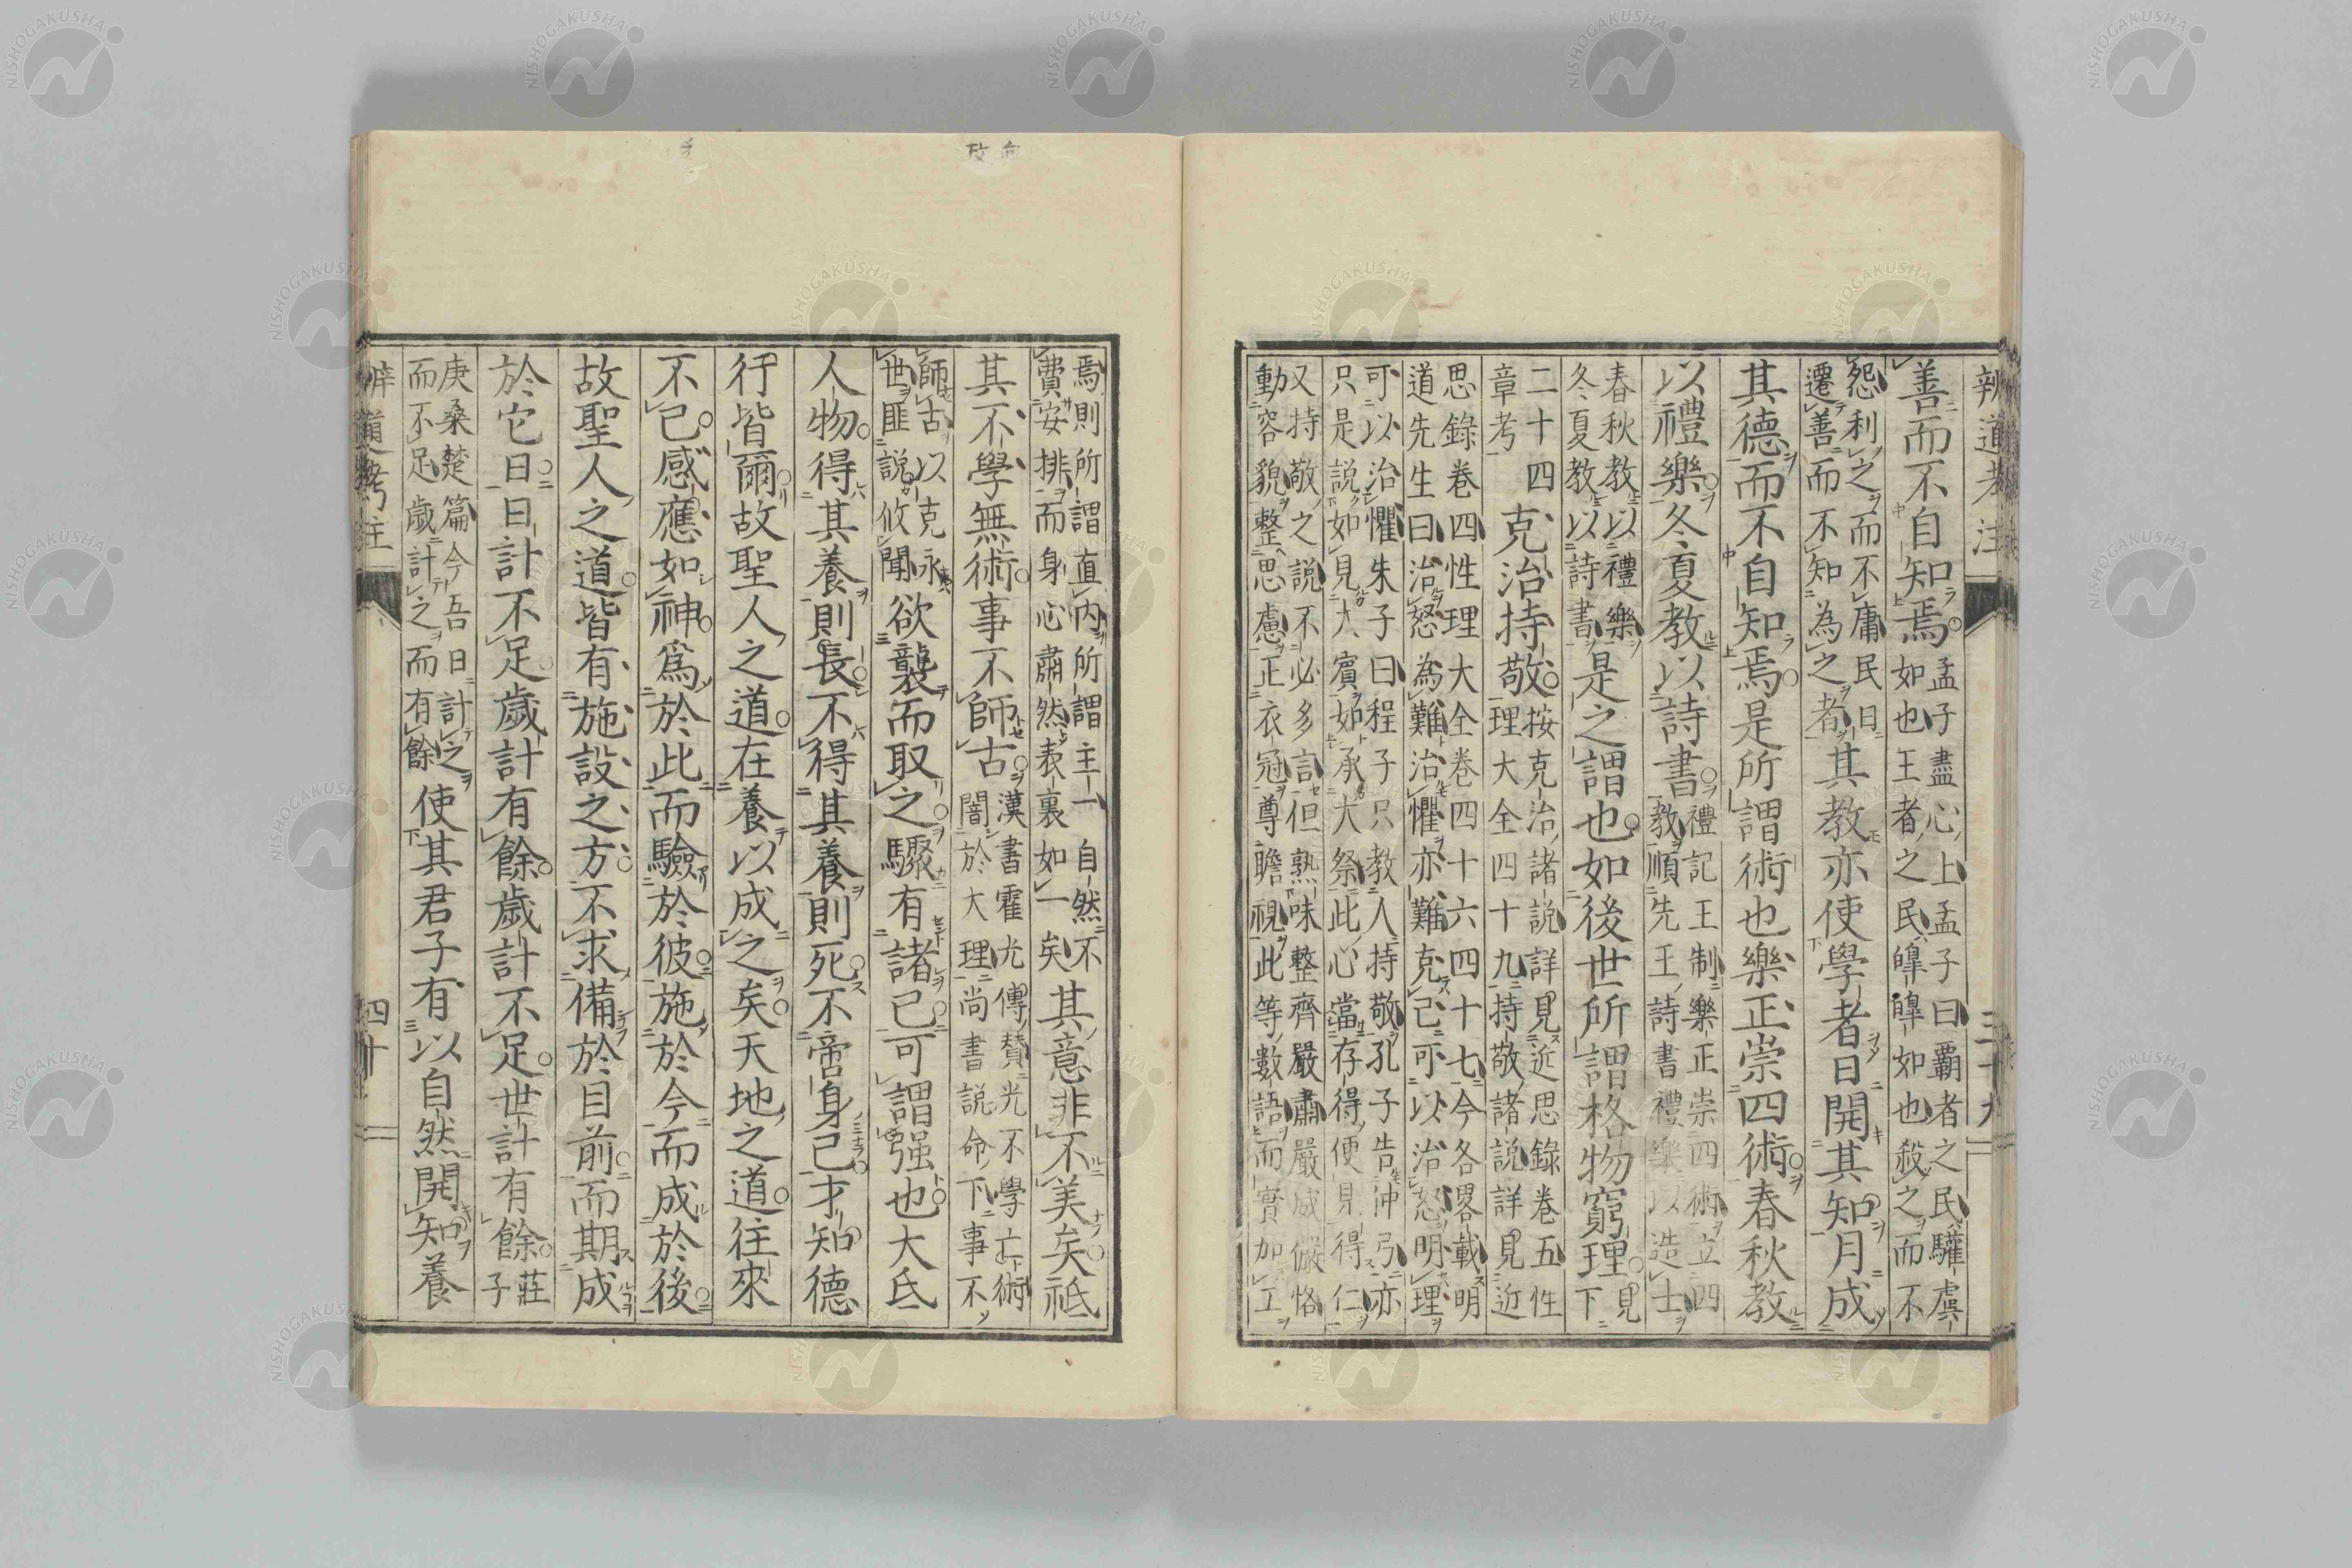 辨道考注
三十九
善而不自知焉。孟子盡心上孟子曰覇者之民驩虞
如也王者之民皥皥如也殺之而不
怨利之而不庸民日
遷善而不知為之者其教亦使學者日開其知月成
其德而不自知焉是所謂術也樂正崇四術春秋教
以禮樂冬夏教以詩書禮記王制樂正崇四術立四
教順先王詩書禮樂以造士
春秋教以禮樂
冬夏教以詩書是之謂也如後世所謂格物窮理見
下
二十四
章考克治持敬按克治諸說詳見近思錄卷五性
理大全四十九持敬諸說詳見近
思錄卷四性理大全卷四十六四十七今各畧載明
道先生曰治怒為難治懼亦難克己可以治怒明理
可以治懼朱子曰程子只教人持敬孔子告仲弓亦
只是說如見大賓如承大祭此心當存得便見得仁
又持敬之說不必多言但熟味整齊嚴肅嚴威儼恪
動容貌整思慮正衣冠尊瞻視此等數語而實加工
焉則所謂直內所謂主一自然不
費安排而身心肅然表裏如一矣其意非不美矣祗
其不學無術事不師古漢書霍光傳贊光不學亡術
闇於大理尚書說命下事不
師古以克永
世匪說攸聞欲襲而取之驟有諸己可謂强也大氐
人物得其養則長不得其養則死不啻身己才知德
行皆爾故聖人之道在養以成之矣天地之道往來
不已感應如神爲於此而驗於彼施於今而成於後
故聖人之道皆有施設之方不求備於目前而期成
於它日日計不足歲計有餘歲計不足世計有餘莊
子
庚桑楚篇今吾日計之
而不足歲計之而有餘使其君子有以自然開知養
辨道考注
四十